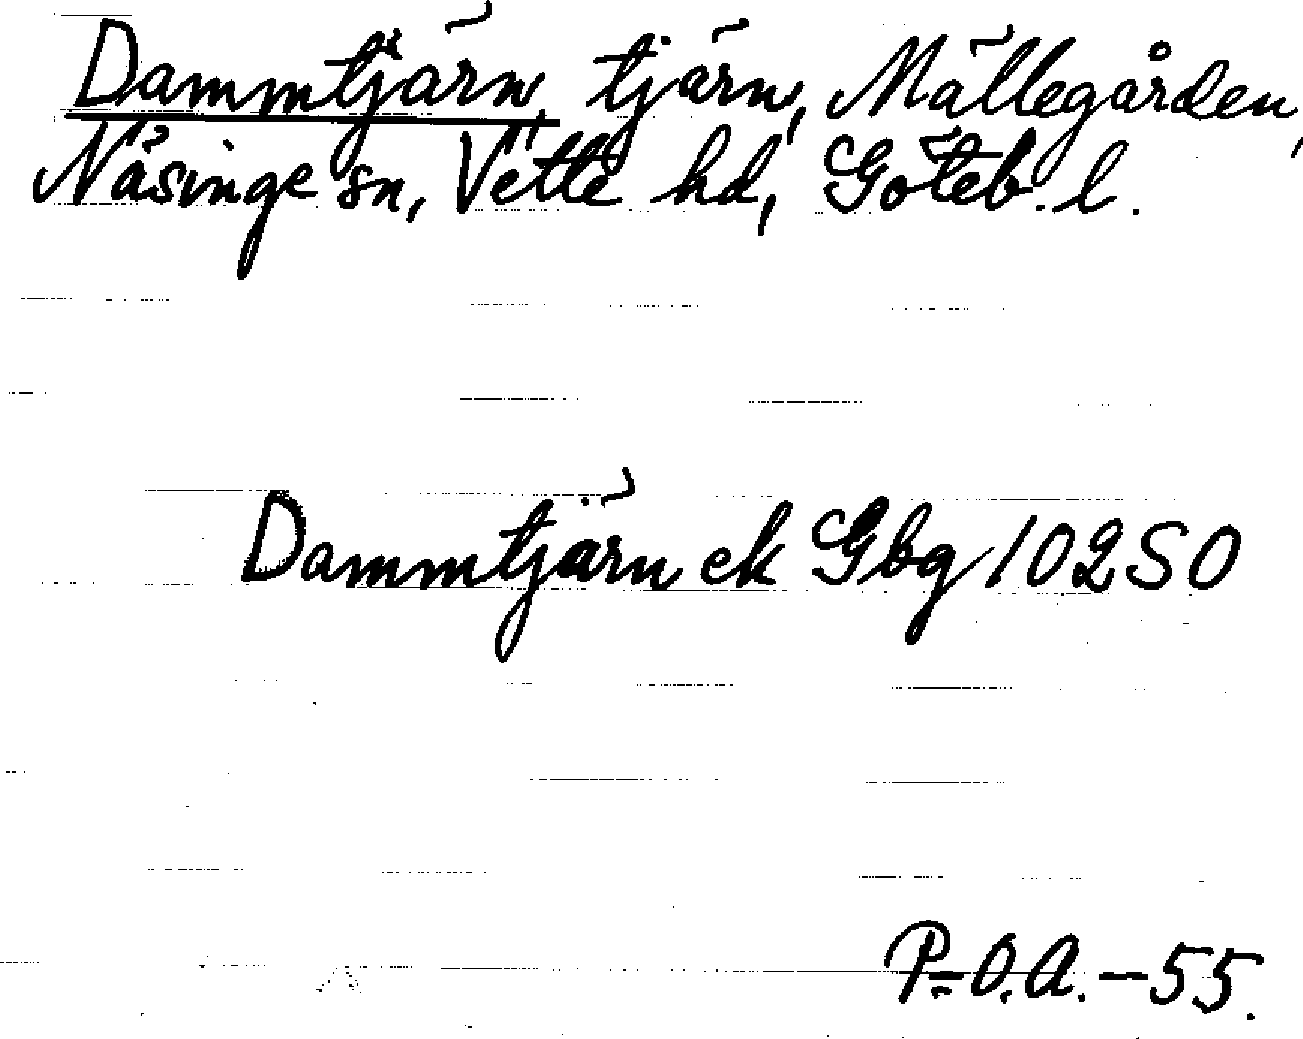 Dammtjärn, tjärn, Mällegården,
Näsinge sn, Vette hd, Göteb. l.
Dammtjärn ek Gbg 10250
P.-O.A. -55.